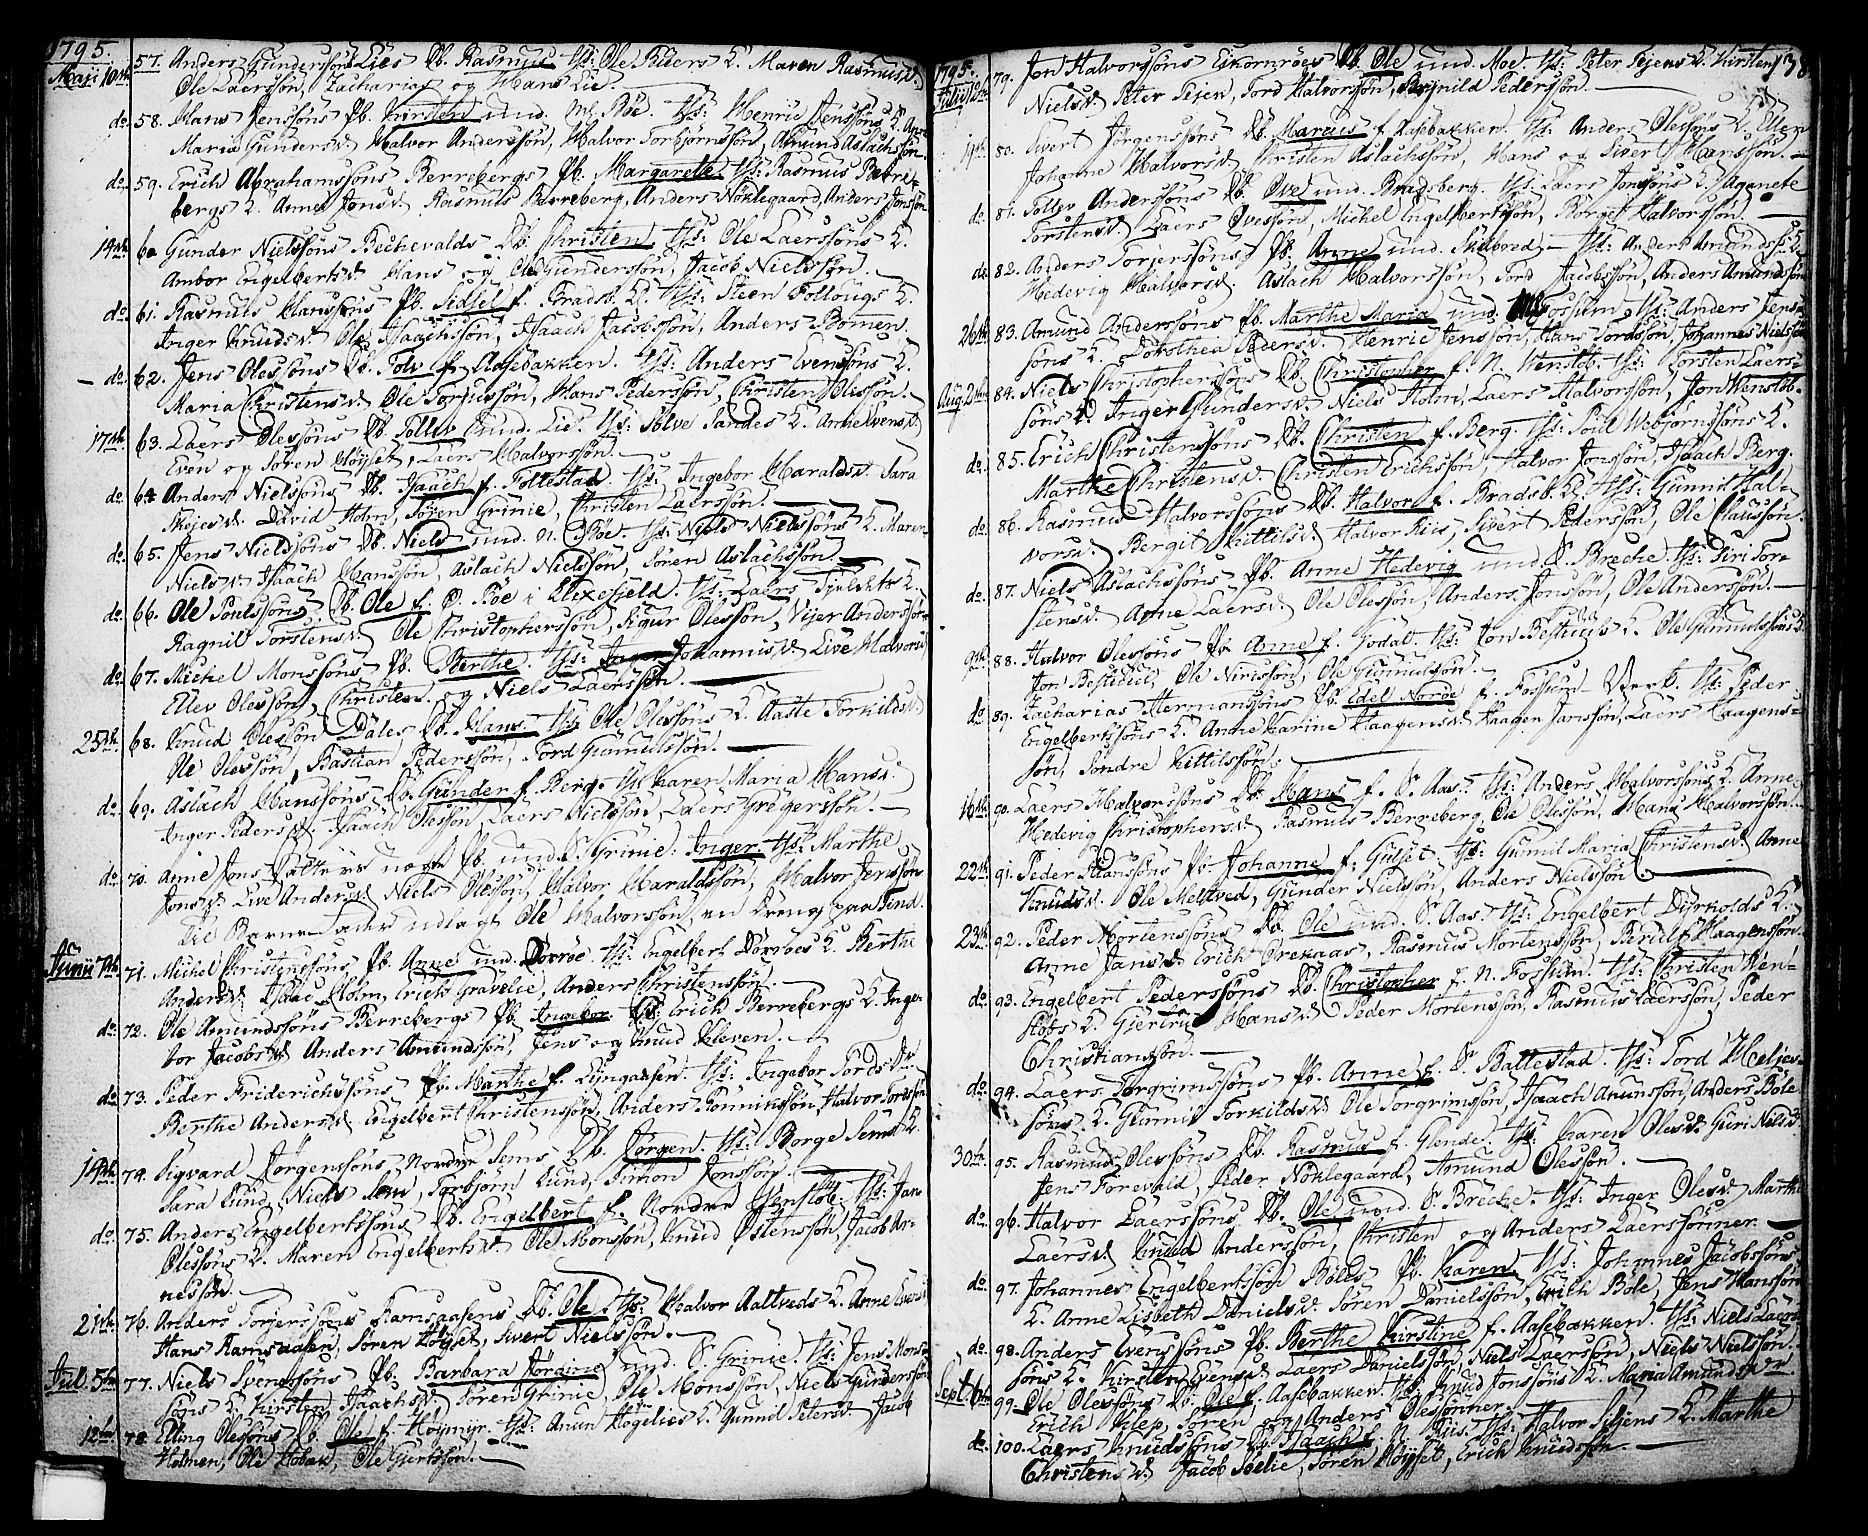 1795.
Maji 10de 57. Anders Gundersøns Lies Db. Rasmus. Ts: Ole Buers K. Maren Rasmusd.
Ole Laersøn, Zacharias og Hans Lie.
do. 58. Hans Jenssøns Pb. Kirsten und. Bøe. Ts: Henric Jenssøns K.
Maria Gundersd. Halvor Anderssøn, Halvor Torbjørnssøn, Amund Aslachssøn.
do. 59. Erich Abrahamssøns Berrebergs Pb. Margarethe. Ts: Rasmus Berre-
bergs K. Anne Jonsd. Rasmus Berreberg, Anders Nøklegaard, Anders Jonssøn
14de 60 Gunder Nielssøns Bechevalds Db. Christen Ts: Ole Laerssøns K.
Ambor Engelbertsd. Hans og Ole Gunderssøn, Jacob Nielssøn.
do. 61. Rasmus Hanssøns Pb. Sidsel f. Bradsb. K. Ts: Steen Follougs K.
Inger Knudsd. Ole Isaachssøn, Isaach Jacobssøn, Anders Bomen.
do. 62. Jens Olessøns Db. Tolv f. Aasebakken. Ts: Anders Evenssøns K.
Maria Christensd. Ole Torjussøn, Hans Pederssøn, Christen Olessøn.
17de 63. Laers Olessøns Db. Tollev und. Lie. Ts: Sølve Sandes K. Anne Evensd.
Even og Søren Høyset, Laers Halvorssøn.
do. 64 Anders Nielssøns Db. Isaach f. Follestad. Ts: Ingebor Haraldsd. Sara
Skejesd. David Holm, Søren Grinie, Christen Laerssøn.
do. 65. Jens Nielssøns Db. Niels und. N. Bøe. Ts: Niels Nielssøns K. Maren
Nielsd. Isaach Hanssøn, Aslach Nielssøn, Søren Aslachssøn.
do. 66. Ole Poulssøns Db. Ole f. Bøe i Slixefjeld. Ts: Laers K.
Ragnil Torstensd. Ole Christopherssøn, Sigur Olessøn, Vijer Anderssøn
do. 67. Michel Monssøns Pb. Berthe. Ts: Johannisd. Live Halvorsd.
Ellev Olessøn, Christen og Niels Laerssøn.
25de 68. Knud Olessøn Dales Db. Hans Ts: Ole Olessøns K. Aaste Torkildsd.
Ole Olessøn, Bastian Pederssøn, Tord Gunnulssøn.
do. 69. Aslach Hanssøns Db. Gunder f. Berg. Ts: Karen Maria Hansd.
Inger Pedersd. Isaach Olessøn, Laers Nielssøn, Laers Gregerssøn.
do. 70. Anne Jons Datters Pb. und. S. Grinie. Inger. Ts: Marthe
Jonsd. Live Andersd. Niels Olessøn, Halvor Haraldssøn, Halvor Jenssøn
Til Barne-Fader udlagt Ole Halvorssøn, en Dreng paa Fend.
Junii 7de 71. Michel Christenssøns Pb. Anne und. Borrøe. Ts: Engelbert Borrøes K. Berthe
Andersd. Isaac Holm, Erich Gravelie, Anders Christenssøn.
do. 72. Ole Amundssøns Berrebergs Pb. Ingebor. Ts: Erich Berrebergs K. Inge-
bor Jacobsd. Anders Amundssøn, Jens og Knud Kleven.
do. 73. Peder Friderichssøns Pb. Marthe f. Lyngaasen. Ts: Ingebor Tordsd.
Berthe Andersd. Engelbert Christenssøn, Anders Gonnikssøn, Halvor Tordssøn
14de 74. Sigvard Jørgenssøns Nordre Sems Db. Jørgen. Ts: Børge Sems K.
Sara Lund, Niels Sem, Torbjørn Lund, Simon Jonssøn.
do. 75. Anders Engelbertssøns Db. Engelbert f. Nordre Wenstøb. Ts: Jan
Olessøns K. Maren Engelbertsd. Ole Monssøn, Knud Østenssøn, Jacob Ar-
nessøn.
21de 76. Anders Torjerssøns Ramsaasens Db. Ole. Ts: Halvor Aaltveds K. Anne Evensd.
Hans Ramsaasen, Søren Høyset, Sivert Nielssøn.
Jul. 5te 77. Niels Svenssøns Pb. Barbara Jørgine und. S. Grinie. Ts: Jens Mons-
søns K. Kirsten Isaachsd. Søren Grinie, Ole Monssøn, Niels Gunderssøn
12te 78. Elling Olessøns Db. Ole f. Høymyr. Ts: Anun Høgelies K. Gunnil Petersd. Jacob
Holmen, Ole Hobæk, Ole Giertssøn.
1795.
Julii 12te 79. Jon Halvorssøns Eikornrøes Db. Ole und. Moe. Ts: Peter Pejens K. Kirsten 138
Nielsd. Peter Pejen, Tord Halvorssøn, Pederssøn.
19de 80. Sivert Jørgenssøns Db. Marcus f. Aasebakken. Ts: Anders Olessøns K. Ellen
Johanne Halvorsd. Christen Aslachssøn, Hans og Sivert Hanssøn.
do. 81. Tollev Anderssøns Db. Ove und. Bradsberg. Ts: Laers Jonssøns K. Aganete
Torstensd. Laers Ovessøn, Michel Engelbertssøn, Børge Halvorssøn.
do. 82. Anders Torjerssøns Pb. Anne und. Skilbred. Ts: Anders Amundss. K.
Hedevig Halvorsd. Aslach Halvorssøn, Tord Jacobssøn, Anders Amundssøn
26de 83. Amund Anderssøns Pb. Marthe Maria und. Fossum. Ts: Anders Jens-
søns K. Dorothea Pedersd. Henric Jenssøn, Hans Tordssøn, Johannes Nielssøn
Aug. 2den 84. Niels Christopherssøns Db. Christopher f. N. Wenstøb. Ts: Torsten Laers-
søns K. Inger Gundersd. Niels Holm, Laers Halvorssøn, Jon Wenstøb.
do. 85. Erich Christenssøns Db. Christen f. Berg. Ts: Poul Webjørnssøns K.
Marthe Christensd. Christen Erichssøn, Halvor Jonssøn, Isaach Berg.
do. 86. Rasmus Halvorssøns Db. Halvor f. Bradsb. K. Ts: Gunnil Hal-
vorsd. Bergit Kittilsd. Halvor Riis, Sivert Pederssøn, Ole Claussøn.
do. 87. Niels Aslachssøns Pb. Anne Hedevig und. S. Breche Ts: Siri Tor-
stensd. Anne Laersd. Ole Olessøn, Anders Jonssøn, Ole Anderssøn.
9de 88. Halvor Olessøns Pb. Anne f. Jødal. Ts: Jon Bestuuls K. Ole Gunnulssøns K.
Jon Bestuul, Ole Nirissøn, Ole Gunnulssøn.
do 89. Zacharias Hermanssøns Pb. Edel Norøe f. Fossum-Verk. Ts: Peder
Engelbertssøns K. Anne Karine Haagensd. Haagen Janssøn, Laers Haagens-
søn, Sondre Kittilssøn.
16de 90. Laers Halvorssøns Db. Hans f. S. Aas. Ts: Anders Halvorssøns K. Anne
Hedevig Christophersd. Rasmus Berreberg, Ole Olessøn, Hans Halvorssøn.
22de 91. Peder Hanssøns Pb. Johanne f. Gulset. Ts: Gunnil Maria Christensd. Anne
Knudsd. Ole Meltved, Gunder Nielssøn, Anders Nielssøn
23de 92. Peder Mortenssøns Db. Ole und. S. Aas. Ts: Engelbert Dyrkolds K.
Anne Jansd. Erich Orekaas, Rasmus Mortenssøn, Berulf Haagenssøn.
do. 93. Engelbert Pederssøns Db. Christopher f. N. Fossum. Ts: Christen Wen-
støbs K. Giertrud Hansd. Peder Mortenssøn, Rasmus Laerssøn, Peder
Christianssøn.
do. 94. Laers Torgrimssøns Pb. Anne f. S. Battestad. Ts: Tord Heljes-
søns K. Gunnil Torkildsd. Ole Torgrimssøn, Isaach Anunssøn, Anders Bøle
30te 95. Rasmus Olessøns Db. Rasmus f. Glende. Ts: Karen Olesd. Guri Nielsd.
Jens Forevald, Peder Nøklegaard, Amund Olessøn.
do. 96. Halvor Laerssøns Db. Ole und. S. Breche. Ts: Inger Olesd. Marthe
Laersd. Knud Anderssøn, Christen og Anders Laerssønner.
do. 97. Johannes Engelbertssøns Bøles Pb. Karen. Ts: Johannes Jacobssøns
K. Anne Lisbeth Danielsd. Søren Danielssøn, Erich Bøle, Jens Hanssøn
do. 98. Anders Evenssøns Pb. Berthe Kirstine f. Aasebakken. Ts: Niels Laers-
søns K. Kirsten Evensd. Laers Danielssøn, Niels Laerssøn, Niels Nielssøn.
Sept. 6te 99. Ole Olessøns Db. Ole f. Aasebakken. Ts: Knud Jonssøns K. Maria Amundsd.
Erich Klep, Søren og Anders Olessønner.
do. 100. Laers Knudssøns Db. Isaach f. N. Riis. Ts: Halvor Siljens K. Marthe
Christensd. Jacob Sølie, Søren Høyset, Erich Knudssøn.